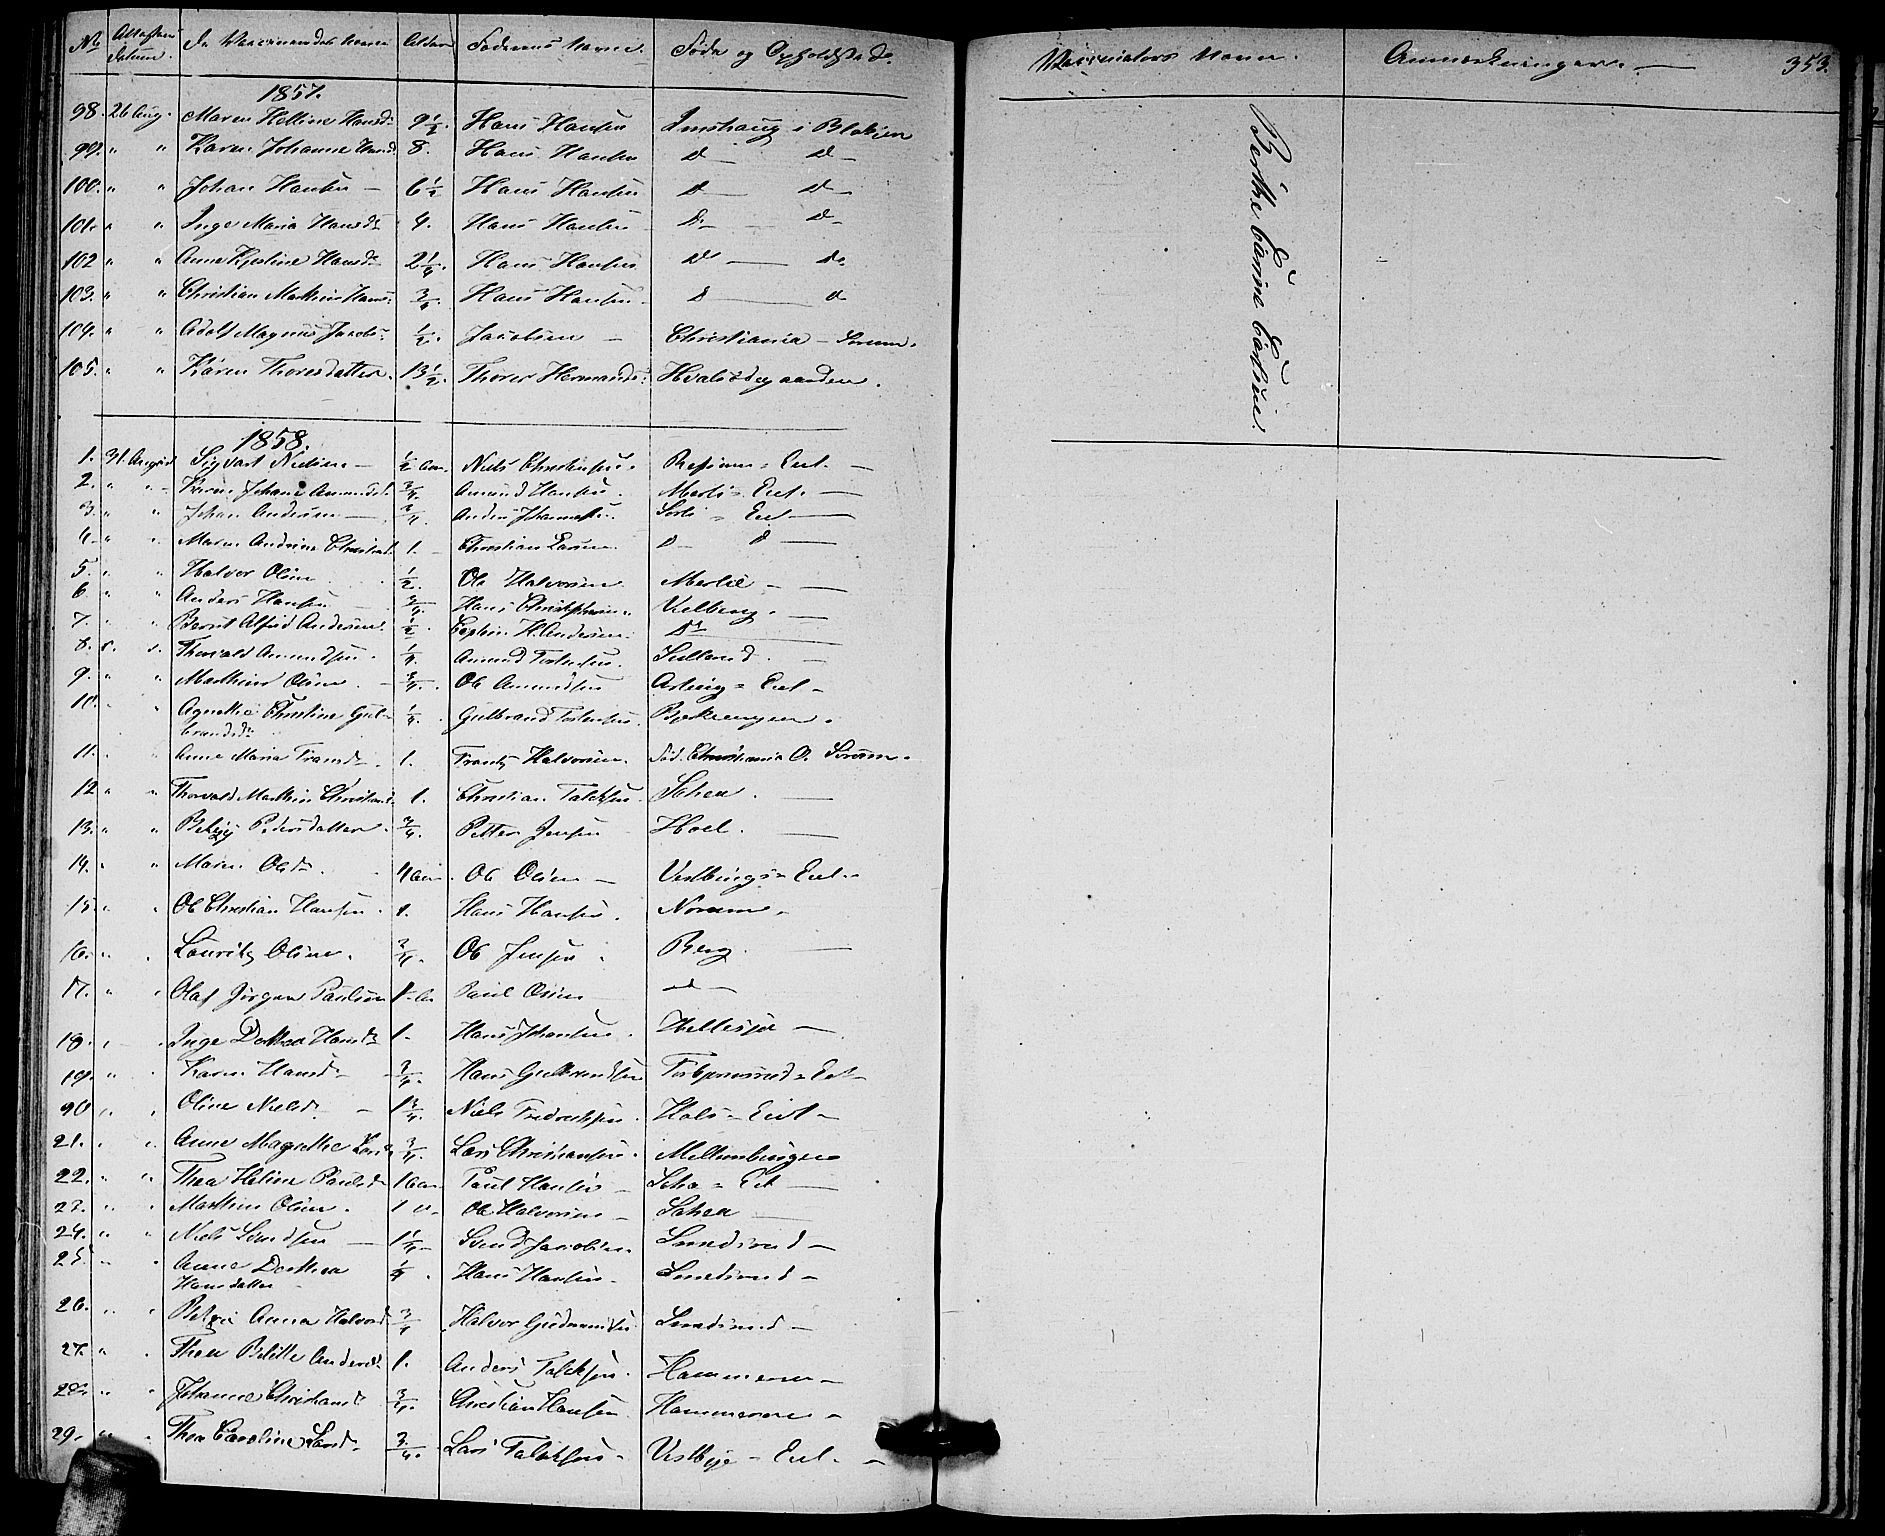 No Attestens Datum. De Vaccineredes Navne Alder Faderens Navne. Føde og Opholdsted. Vaccinators Navn. Anmærkninger. 353.
1857.
98. 26 Aug. Maren Helline Hansd. 9 1/2. Hans Hansen i Blakjer
99. " " Karen Johanne Hansd. 8. Hans Hansen D D
100. " " Johan Hansen 6 1/2 Hans Hansen D D
101. " " Inge Maria Hansd. 4. Hans Hansen D D
102 " " Anne Hansd. 2 1/4. Hans Hansen D D
103. " " Christian Hans: 3/4. Hans Hansen D D
104. " " Adolf Magnus Jacobs: 1/2. Jacobsen Christiania - Sørum.
105. " " Karen Thoresdatter. 13 1/2. Thorer Hvalsødegaarden.
Berthe
1858.
1. 31 August Sigvart Nielsen 1/2 Aar. Niels Christensen. Eiet.
2. " " Johane Amunds. 3/4. Amund Hansen. Merli - Eiet.
3. " " Johan Andersen 3/4. Anders Johannesen. Eiet
4. " " Maren Andrine Christians. 1. Christian Larsen. D D
5. " " Halvor Olsen 1/2. Ole Halvorsen Merlie
6. " " Anders Hansen 3/4. Hans Christophersen. Velberg.
7. " " Bernt Alfred Andersen. 1/2. H. Andersen. Do
8. " " Thorvald Amundsen. 1/4. Amund Torstensen.
9. " " Mathias Olsen. 3/4. Ole Amundsen Eiet
10. " " Agnethe Christine Gul-
brandsdr. 1/4. Gulbrand Torstensen.
11. " " Anne Maria Frandsd. 1. Frantz Halvorsen. Fød. Christiania O. Sørum.
12 " " Thorvald Christians. 1. Christian Falcksen. Schea.
13. " " Pedersdatter. 3/4. Petter Jensen Hoel.
14. " " Maren Olsd. Aar Ole Olsen Vestbings - Eiet.
15. " " Ole Christian Hansen. 1. Hans Hansen.
16. " " Lauritz Olsen. 3/4. Ole Jensen Berg.
17. " " Olaf Jørgen Paulsen Paul Olsen
18. " " Inge Dorthea Hansd. 1. Hans Johansen. Hellesjø
19. " " Karen Hansd. 3/4. Hans Gulbrandsen Torbjørnsrud - Eiet
20 " " Oline Nielsd. 1 3/4. Niels Fredriksen. Eiet
21. " " Anne Magnethe 3/4. Lars Christiansen.
22. " " Thea Heline Paulsd. 1 Aar Paul Hansen Scha - Eiet
23. " " Mathias Olsen. 1 Ole Halvorsen Schea
24. " " Niels Svendsen 1 1/4 Svend Jacobsen. Smedsrud
25. " " Anne Dorthea
Hansdatter 1/4. Hans Hansen. Smedsrud
26. " " Anna Halvorsd. 3/4 Halvor Smedsrud
27. " " Thea Anders. 1. Anders Falcksen. Hammeren
28. " " Johanne Christiansd. 3/4. Christian Hansen. Hammeren
29. " " Thea Caroline Larsd. 3/4. Lars Falcksen. Vestbye - Eiet.